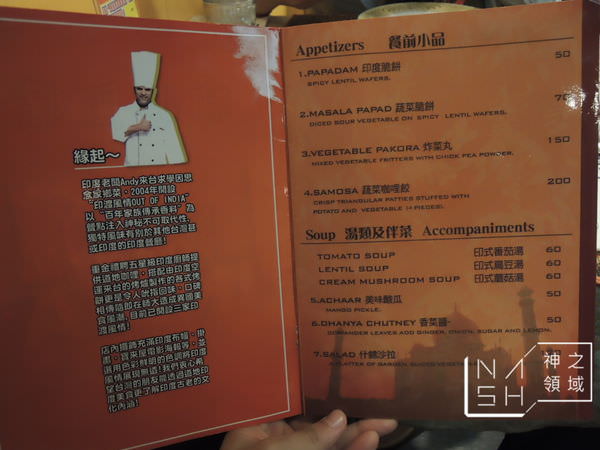 緣起～
印度老闆Andy來台求學因思
念家鄉菜，2004年開設
"印渡風情OUT OF INDIA"
以"百年家族傳承香料"為
餐點注入神秘不可取代性、
獨特風味有別於其他台灣甚
或印度的印度餐廳！
重金禮聘五星級印度廚師提
供道地咖哩，搭配由印度空
運來台的烤爐製作的各式烤
餅更是令人吮指回味，口碑
相傳隨即在師大造成異國美
食風潮，目前已開設三家印
渡風情！
店內牆飾充滿印度布幔、掛
畫、寶萊屋電影海報等，並
選用色彩鮮明的色調將印度
風情展現無遺！我們衷心希
望台灣的朋友能透過道地印
度美食更了解印度古老的文
化內涵！
Appetizers 餐前小品
1.PAPADAM 印度脆餅 50
SPICY LENTIL WAFERS.
2.MASALA PAPAD 蔬菜脆餅 70
DICED SOUR VEGETABLE ON SPICY LENTIL WAFERS.
3.VEGETABLE PAKORA 炸菜丸 150
MIXED VEGETABLE FRITTERS WITH CHICK PEA POWDER.
4.SAMOSA 蔬菜咖哩餃 200
CRISP TRIANGULAR PATTIES STUFFED WITH
POTATO AND VEGETABLE (4 PIECES).
Soup 湯類及伴菜 Accompaniments
TOMATO SOUP 印式番茄湯 60
LENTIL SOUP 印式扁豆湯 60
CREAM MUSHROOM SOUP 印式蘑菇湯 60
5.ACHAAR 美味酸瓜 50
MANGO PICKLE.
6.DHANYA CHUTNEY 香菜醬 50
CORIANDER LEAVES ADD GINGER, ONION, SUGAR AND LEMON.
7.SALAD 什錦沙拉
A PLATTER OF GARDEN, SLICED VEGETABLE
NASH
神之
領域